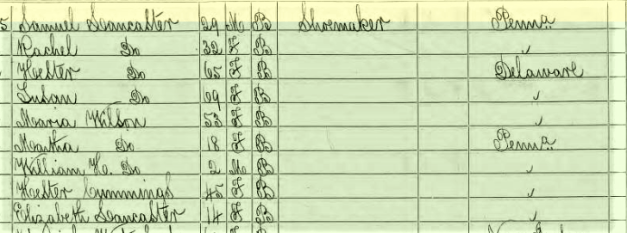 5 Samuel Lancaster 29 M B Shoemaker Penna
Rachel Do 32 F B ✓
Hester Do 65 F B Delaware
Susan Do 69 F B ✓
Maria Wilson 53 F B ✓
Martha Do 18 F B Penna
William H. Do 2 M B ✓
Hester Cummings 45 F B ✓
Elizabeth Lancaster 14 F B ✓